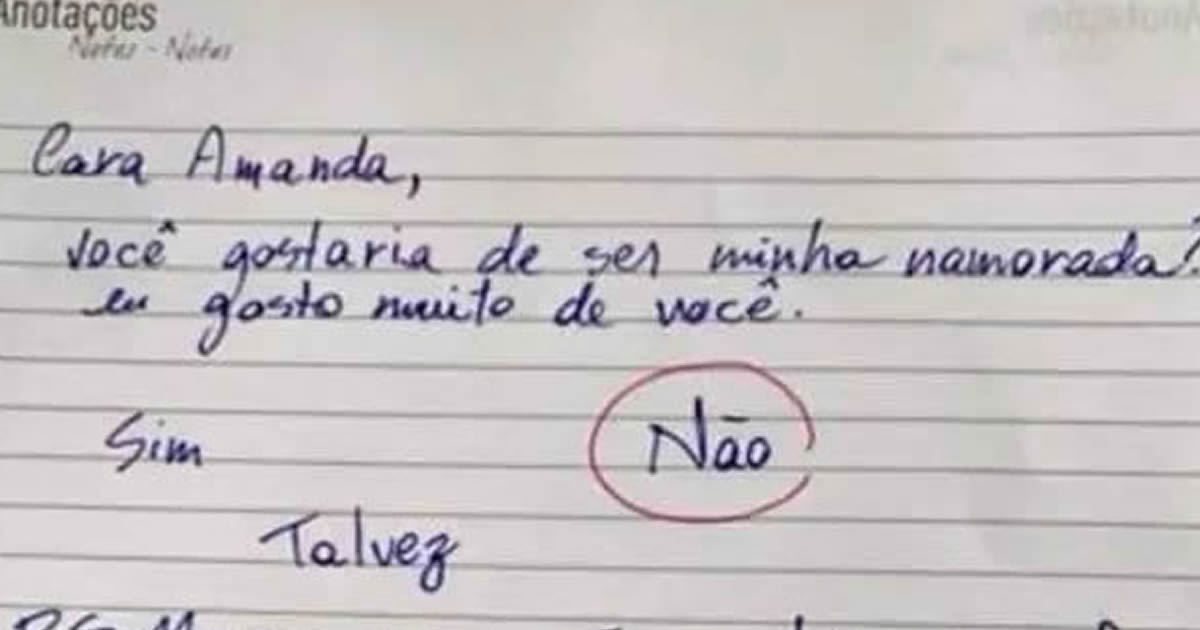 Anotações
Notes - Notas
Cara Amanda,
você gostaria de ser minha namorada?
eu gosto muito de você.
Sim
Não
Talvez